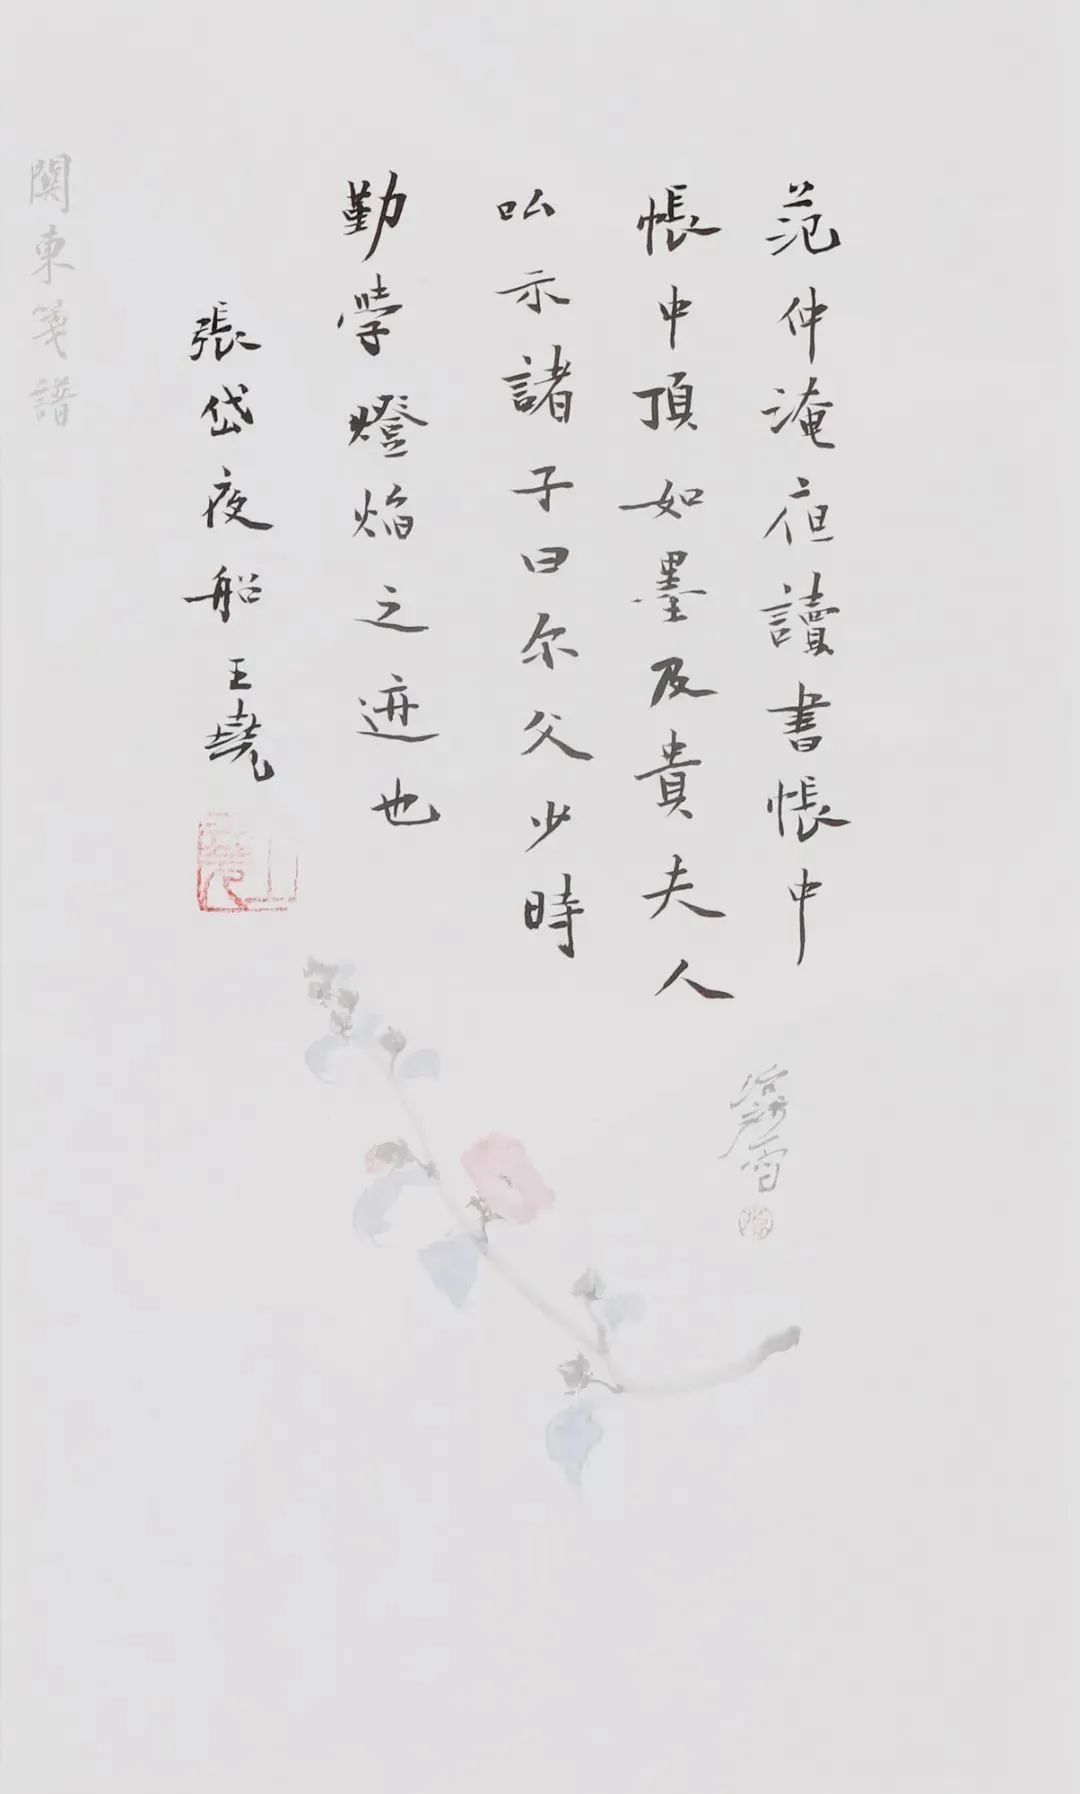 范仲淹亱讀書帳中
帳中頂如墨及貴夫人
㕥示諸子曰尔父少時
勤學燈焰之迹也
張岱夜船王堯
王堯
関東箋譜